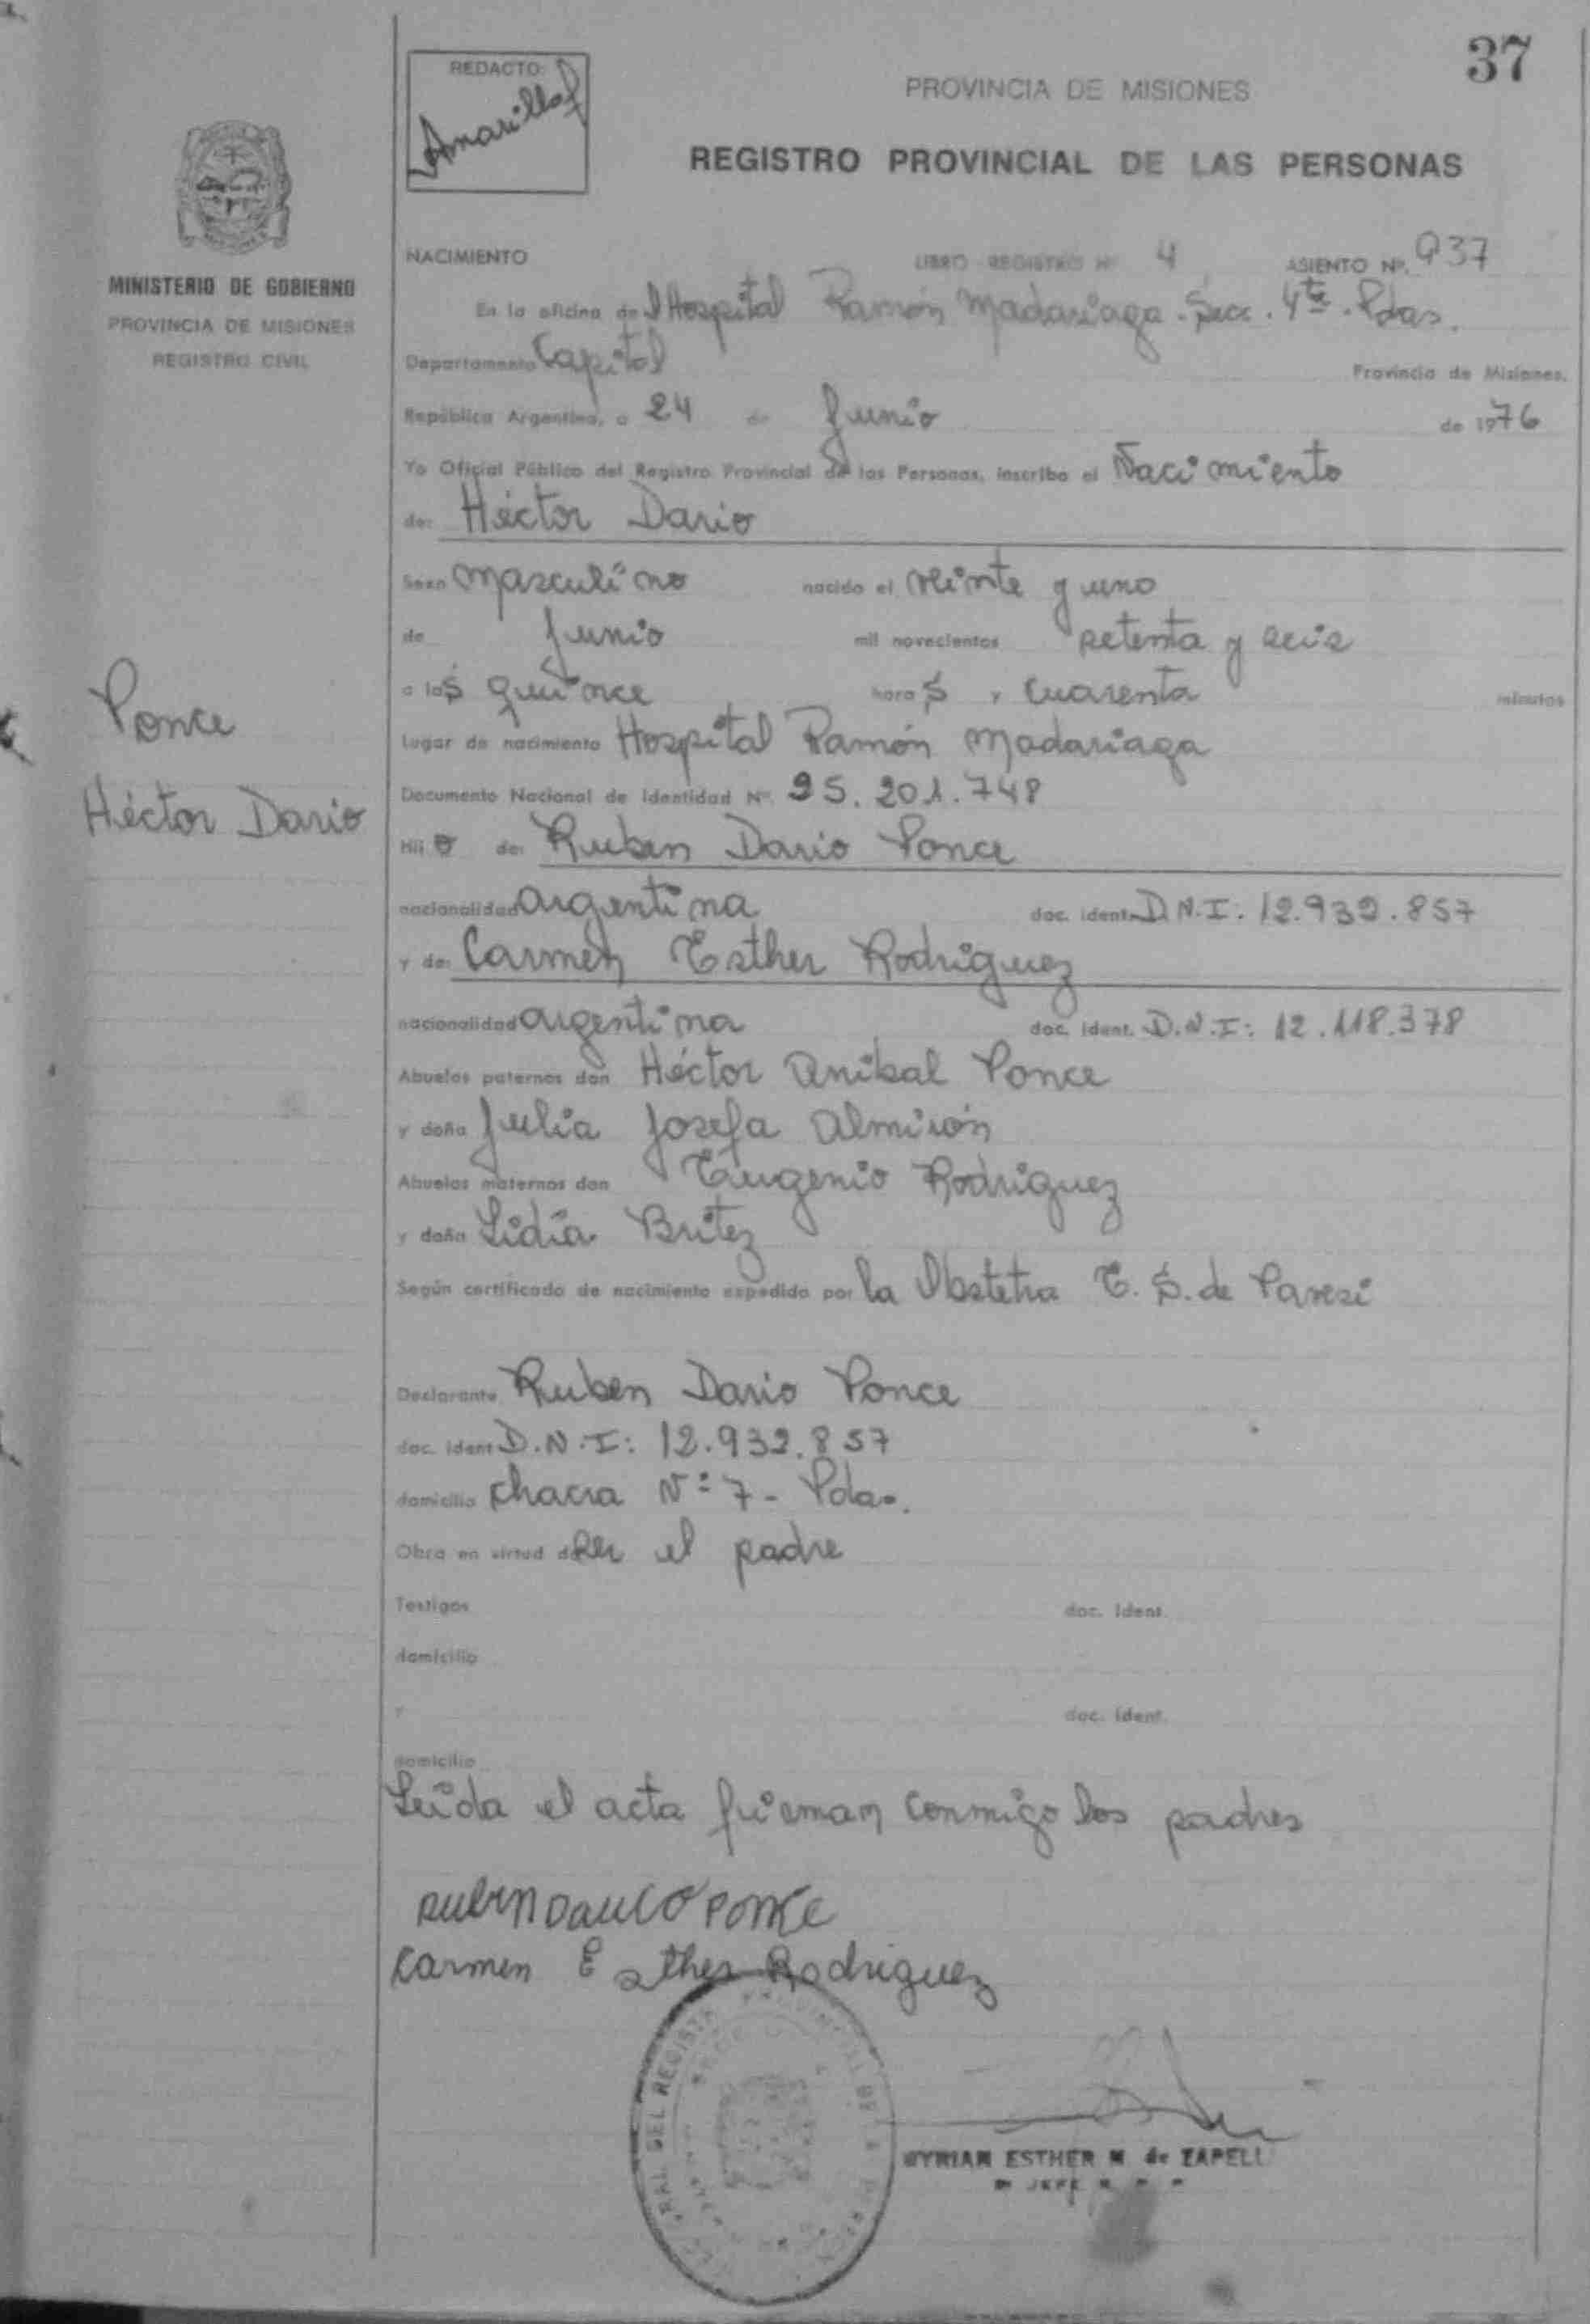 37
REDACTO:
Amarilla
PROVINCIA DE MISIONES
REGISTRO PROVINCIAL DE LAS PERSONAS
MINISTERIO DE GOBIERNO
PROVINCIA DE MISIONES
REGISTRO CIVIL
NACIMIENTO LIBRO REGISTRO Nº 4 ASIENTO Nº. 937
En la oficina del Hospital Ramón Madariaga. Secc. 4ta. Pdas.
Departamento Capital Provincia de Misiones.
República Argentina, a 24 de Junio de 1976
Yo Oficial Público del Registro Provincial de las Personas, inscribo el Nacimiento
de: Héctor Dario
Sexo masculino nacido el veinte y uno
de Junio mil novecientos setenta y seis
a las quince horas y cuarenta minutos
Lugar de nacimiento Hospital Ramón Madariaga
Documento Nacional de Identidad Nº 25.201.748
Hijo de: Ruben Dario Ponce
nacionalidad argentina doc. ident. D.N.I: 12.932.857
y de: Carmen Esther Rodriguez
nacionalidad argentina doc. ident. D.N.I: 12.118.378
Abuelos paternos don Héctor Anibal Ponce
y doña Julia Josefa Almirón
Abuelos maternos don Eugenio Rodriguez
y doña Lidia Britez
Según certificado de nacimiento expedido por la Obstetra E. S. de Paresi
Declarante Ruben Dario Ponce
doc. ident D.N.I: 12.932.857
domicilio chacra Nº 7 - Pdas.
Obra en virtud de ser el padre
Testigos doc. ident.
domicilio
y doc. ident.
domicilio
Leida el acta firman conmigo los padres
Ponce
Héctor Dario
Ruben Dario Ponce
Carmen Esther Rodriguez
MYRIAM ESTHER M de ZAPELLI
JEFE